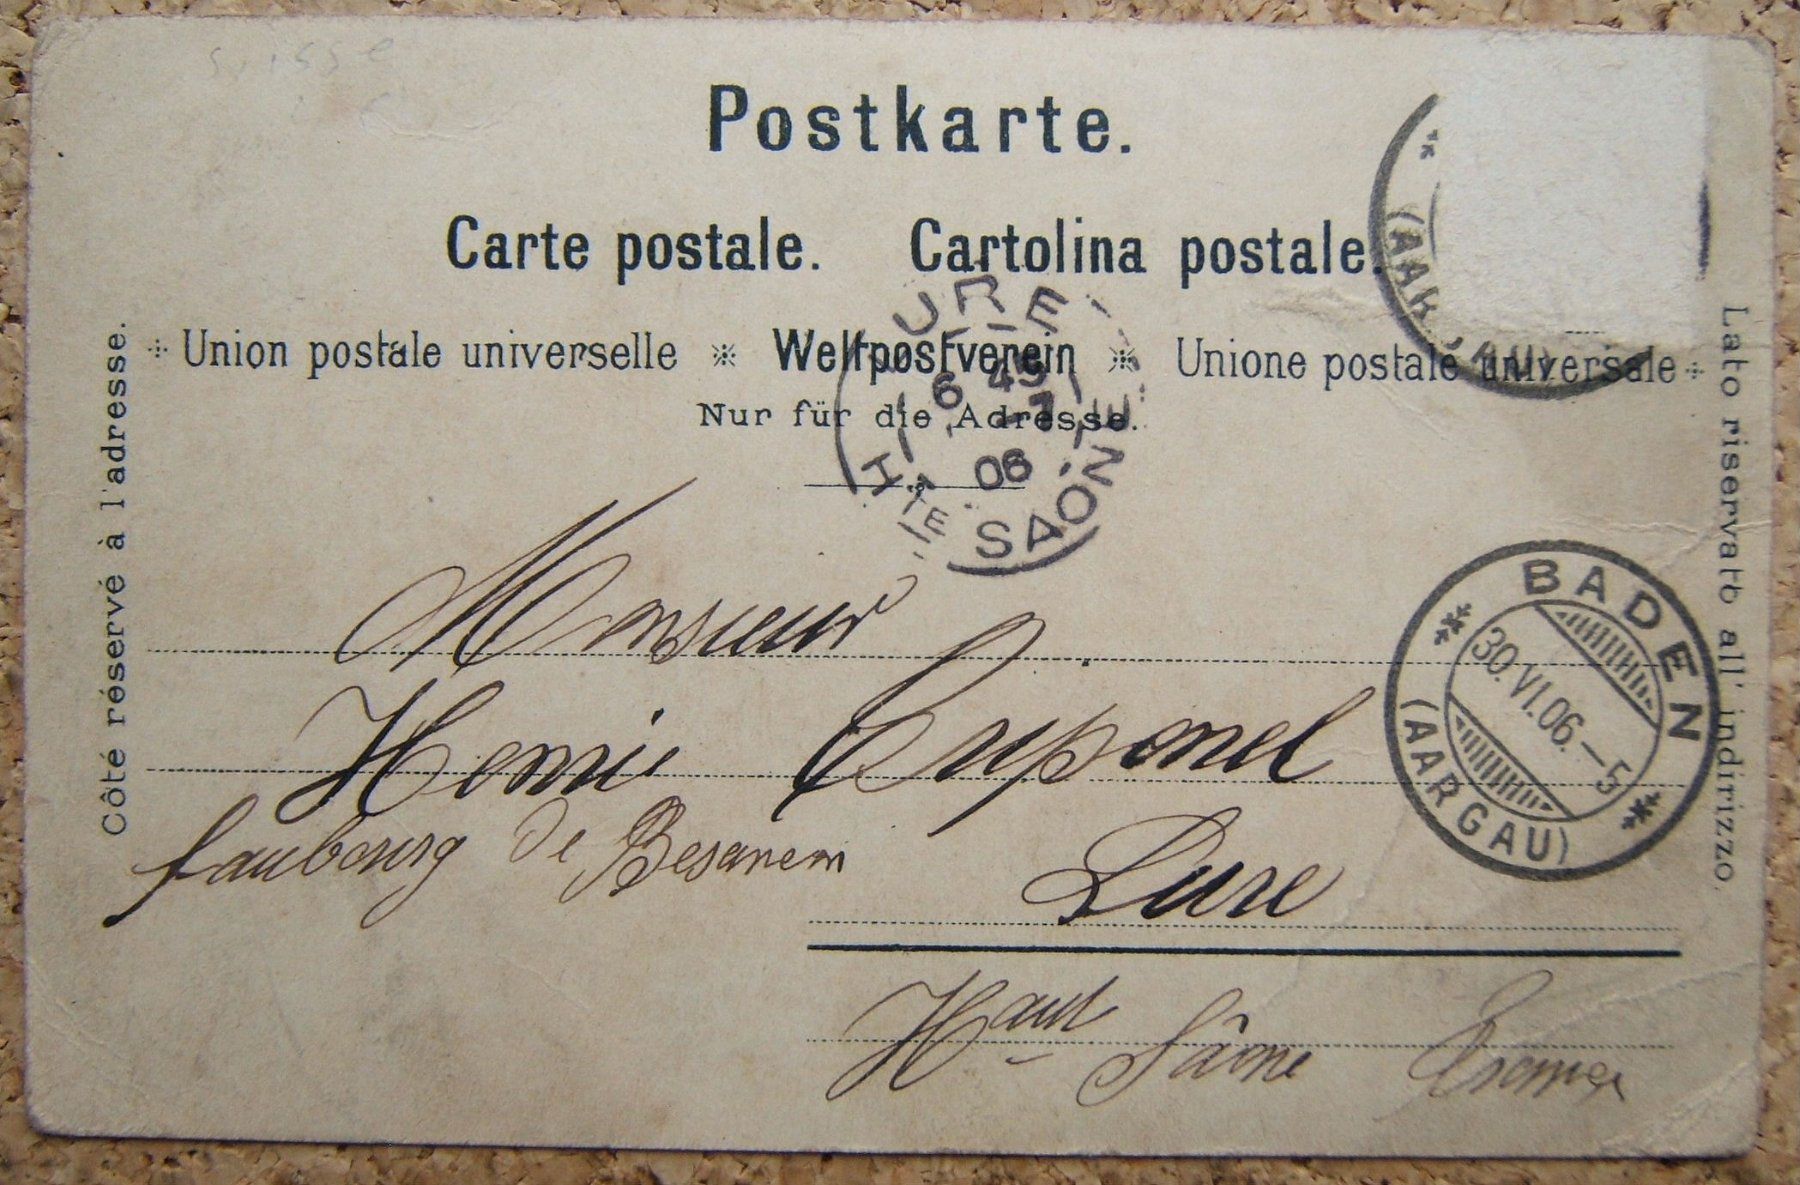 suisse
Postkarte.
Carte postale. Cartolina postale.
Union postale universelle Weltpostverein Unione postale universale
Nur für die Adresse.
Côté réservé à l'adresse.
Lato riservato all' indirizzo.
(AARGAU)
LURE
6 45
7
06
HTE SAONE
BADEN
30.VI.06.–5
(AARGAU)
Monsieur
Henri
faubourg de
Lure
Haut Saône